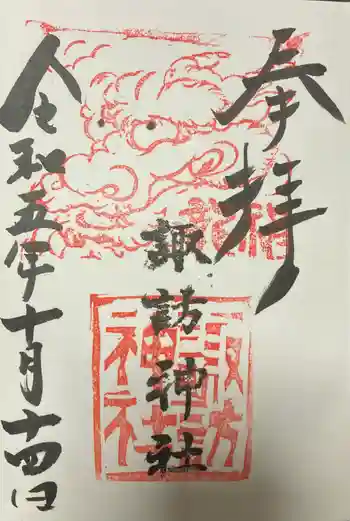 奉拝
諏訪神社
令和五年十月十四日
諏訪神社